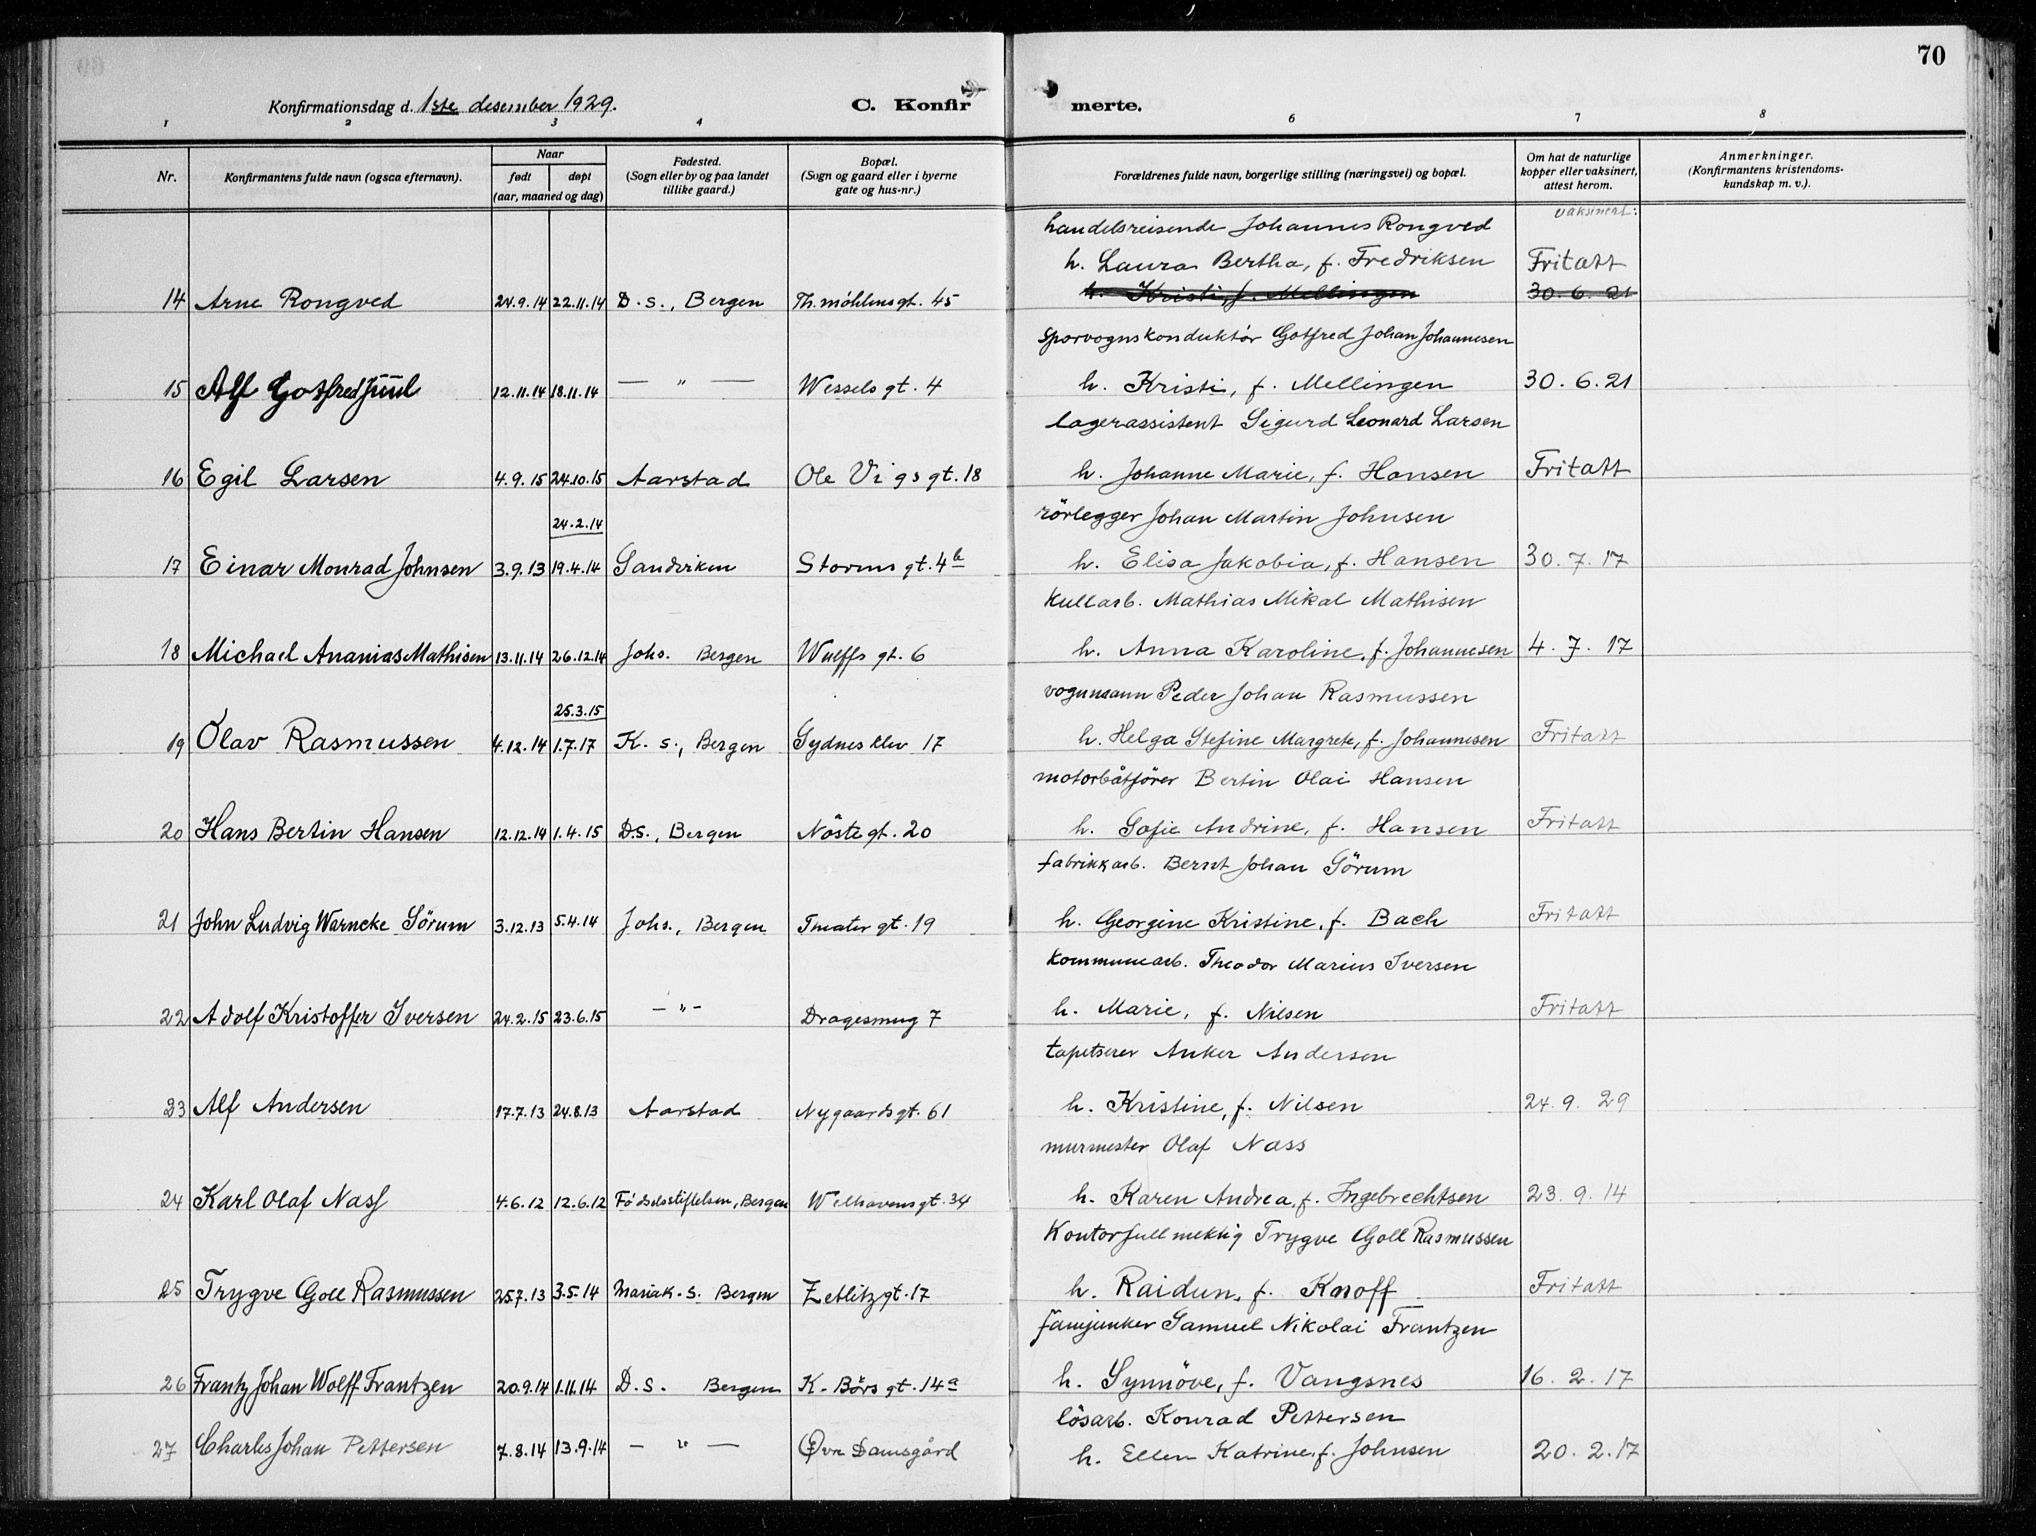 70
Konfirmationsdag d. 1ste desember 1929. C. Konfir merte.
1 2 3 4 6 7 8
Nr. Konfirmantens fulde navn (ogsaa efternavn). Naar født døpt (aar, maaned og dag) Fødested. (Sogn eller by og paa landet tillike gaard.) Bopæl. (Sogn og gaard eller i byerne gate og hus-nr.) Forældrenes fulde navn, borgerlige stilling (næringsvei) og bopæl. Om hat de naturlige kopper eller vaksinert, attest herom. Anmerkninger. (Konfirmantens kristendoms-kundskap m. v.).
vaksinert:
handelsreisende Johannes Rongved
h. Laura Bertha, f. Fredriksen Fritatt
14 Arne Rongved 24.9.14 22.11.14 D. s., Bergen Th. möhlensgt. 45 h. Kristi, f. Mellingen 30.6.21
sporvognskonduktör Gotfred Johan Johannesen
15 Alf Gotfred Juul 12.11.14 18.11.14 — " — Wessels gt. 4 h. Kristi, f. Mellingen 30.6.21
lagerassistent Sigurd Leonard Larsen
16 Egil Larsen 4.9.15 24.10.15 Aarstad Ole Vigs gt. 18 h. Johanne Marie, f. Hansen Fritatt
24.2.14 rörlegger Johan Martin Johnsen
17 Einar Monrad Johnsen 3.9.13 19.4.14 Sandviken Storms gt. 4b h. Elisa Jakobia, f. Hansen 30.7.17
Kullarb. Mathias Mikal Mathisen
18 Michael Ananias Mathisen 13.11.14 26.12.14 Johs. Bergen Wulffs gt. 6 h. Anna Karoline, f. Johannesen 4.7.17
25.3.15 vognmann Peder Johan Rasmussen
19 Olav Rasmussen 4.12.14 1.7.17 K. s., Bergen Sydneskleiv 17 h. Helga Stefine Margrete, f. Johannesen Fritatt
motorbåtförer Bertin Olai Hansen
20 Hans Bertin Hansen 12.12.14 1.4.15 D.s., Bergen Nöstegt. 20 h. Sofie Andrine, f. Hansen Fritatt
fabrikkarb. Bernt Johan Sörum
21 John Ludvig Warncke Sörum 3.12.13 5.4.14 Johs., Bergen Theater gt. 19 h. Georgine Kristine, f. Bach Fritatt
Kommunearb. Theodor Marius Iversen
22 Adolf Kristoffer Iversen 24.2.15 23.6.15 — " — Dragesmug 7 h. Marie, f. Nilsen Fritatt
tapetserer Anker Andersen
23 Alf Andersen 17.7.13 24.8.13 Aarstad Nygaardsgt. 61 h. Kristine, f. Nilsen 24.9.29
murmester Olaf Nass
24 Karl Olaf Nass 4.6.12 12.6.12 Födselsstiftelsen, Bergen Welhavensgt. 34 h. Karen Andrea, f. Ingebrechtsen 23.9.14
Kontorfullmektig Trygve Goll Rasmussen
25 Trygve Goll Rasmussen 25.7.13 3.5.14 Mariak. s. Bergen Zetlitzgt. 17 h. Raidun, f. Knoff Fritatt
fanejunker Samuel Nikolai Frantzen
26 Frantz Johan Wolff Frantzen 20.9.14 1.11.14 D. s. Bergen K. Börs gt. 14a h. Synnöve, f. Vangsnes 16.2.17
lösarb. Konrad Pettersen
27 Charles Johan Pettersen 7.8.14 13.9.14 — " — Övre Damsgård h. Ellen Katrine, f. Johnsen 20.2.17